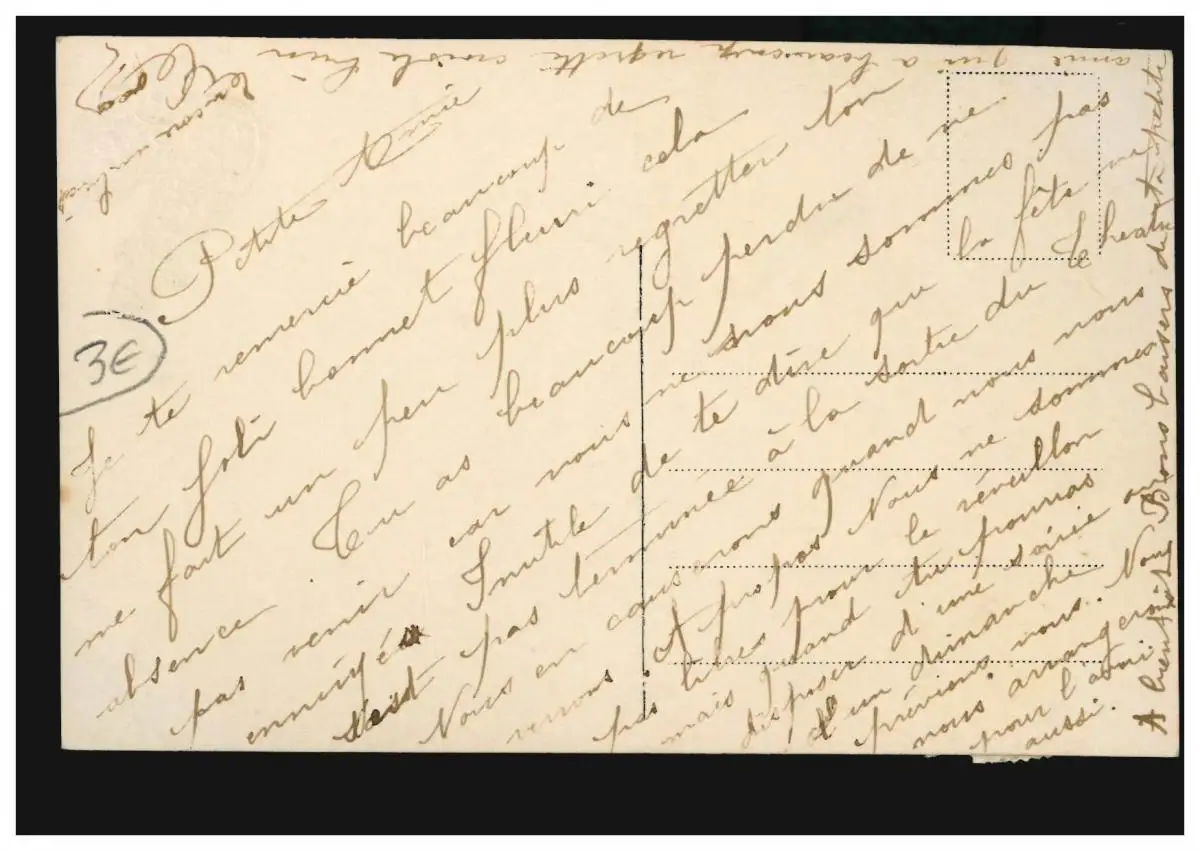 Petite Amie
Je te remercie beaucoup de
ton joli bonnet fleuri cela
me fait un peu plus regretter ton
absence Tu as beaucoup perdu de ne
pas venir car nous ne nous sommes pas
ennuyés Inutile de te dire que la fête ne
s'est pas terminée à la sortie du Theatre
Nous en causerons quand nous nous
verrons. A propos Nous ne sommes
pas libres pour le réveillon
mais quand tu pourras
disposer d'une soirée ou
d'un dimanche
préviens nous. Nous
nous arrangerons
pour l'ami
aussi.
A bientôt Bons baisers de ta petite
amie qui a beaucoup regretté
3€